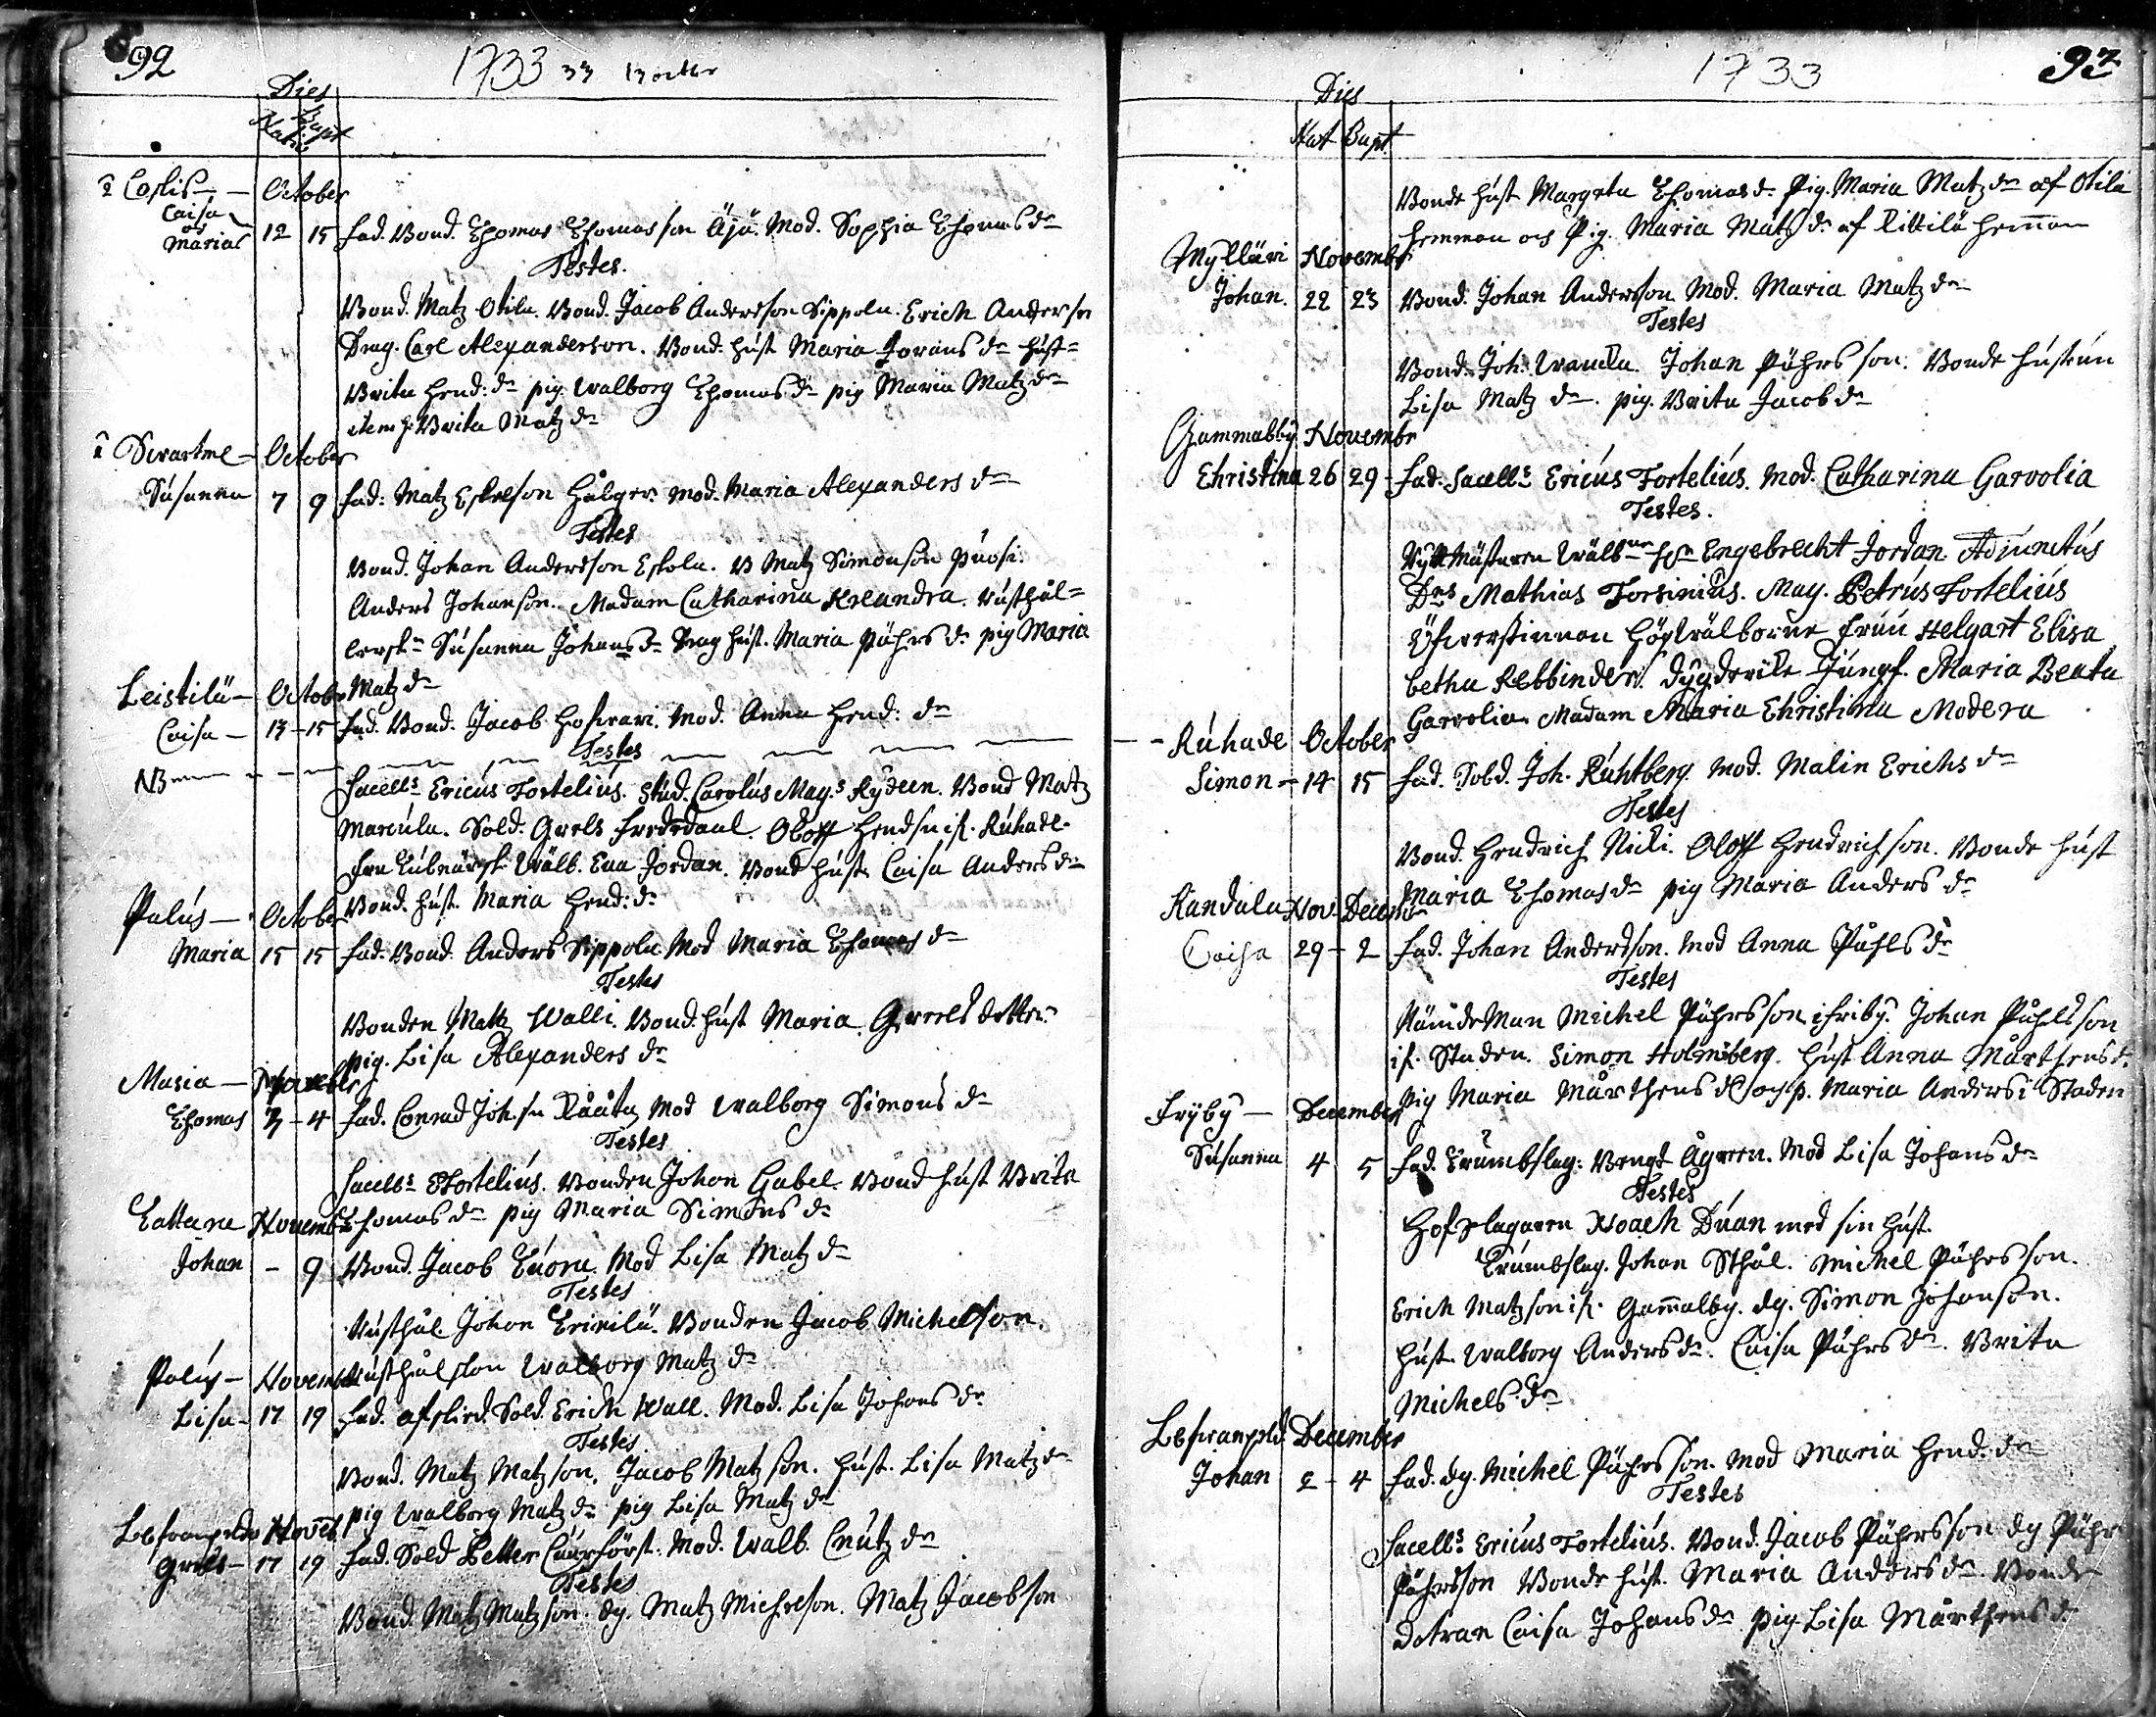 92
1733 33
Dies
Natus Bapt
Caslis — October
Caisa
och
Maria 12 15 fad. Bond. Thomas Thomasson Äjä. Mod. Sophia Thomas dr
Testes.
Bond. Matz Otila. Bond. Jacob Andersson Sippola. Erich Anderson
Drag. Carl Alexanderson. Bond. hust Maria Jörans dr hust=
Brita Hend: dr pig. Walborg Thomas dr pig Maria Matz dr
item h. Brita Matz dr
Swartme — October
Susanna 7 9 fad: Matz Eskelson Hålger. mod. Maria Alexanders dr
Testes
Bond. Johan Andersson Eskola. B Matz Simonson Puosi.
Anders Johanson. Madam Catharina Kreandra. Rusthål=
lersk Susanna Johans dr Drag hust. Maria Påhrs dr pig Maria
Matz dr
Leistilä — October
Caisa — 13 – 15 fad. Bond. Jacob Hofwari. Mod. Anna Hend: dr
Testes
NB
Sacells Ericus Fortelius. Stud. Carolus Mag.s Rydeen. Bond Matz
Marcula. Sold. Grels Frededaal. Oloff Hendson if. Ruhade.
Wälb. Eva Jordan. Bond hust. Caisa Anders dr
Bond. hust. Maria Hend: dr
Palus — October
Maria 15 15 fad. Bond. Anders Sippola Mod Maria Thomas dr
Testes
Bonden Matz Walli. Bond. hust Maria Greels dotter.
pig. Lisa Alexanders dr
Masia — November
Thomas 3 – 4 fad. Conrad Joh.sn Rååta Mod Walborg Simons dr
Testes
Sacells EFortelius. Bonden Johan Gabel. Bond hust Brita
Thomas dr pig Maria Simons dr
Tattara November
Johan – 9 Bond. Jacob Tuora. Mod Lisa Matz dr
Testes
Rusthål. Johan Erikilä. Bonden Jacob Michelson.
Rusthålskon Walborg Matz dr
Palus — November
Lisa — 17 19 fad. afskied. Sold. Erich Wall. Mod. Lisa Johans dr
Testes
Bond. Matz Matzson. Jacob Matzson. hust. Lisa Matz dr
pig Walborg Matz dr pig Lisa Matz dr
Novemb
Grels — 17 19 fad. Sold Petter Mod. Walb. Cnutz dr
Testes
Bond. Matz Matzson. dg. Matz Michelson. Matz Jacobson
1733
93
Dies
Nat Bapt
Bonde hust Margeta Thomas dr Pig. Maria Matz dr af Otila
hemman och Pig. Maria Matz dr af Rittilä hemman
Mylläri November
Johan. 22 23 Bond. Johan Andersson Mod. Maria Matz dr
Testes
Bond. Joh. Johan Påhrsson. Bonde hustrun
Lisa Matz dr. pig. Brita Jacob dr
Gammalby Novembr
Christina 26 29 fad. Sacells Ericus Fortelius. Mod. Catharina Garvolia
Testes.
Ryttmästaren Wälb. Engebrecht Jordan Adjunctus
Dns Mathias Forsinius. Mag. Petrus Fortelius
Öfwerstinnan Högwälborne fruu Helgart Elisa
betha Rebbinder. dygderike Jungf. Maria Beata
Garvolia Madam Maria Christina Modera
Ruhade October
Simon – 14 15 fad. Sold. Joh. Ruhtberg. Mod. Malin Erichs dr
Testes
Bond. Hendrich Nicki. Oloff Hendrichson. Bonde hust
Maria Thomas dr pig Maria Anders dr
Randala Nov. Decemb
Caisa 29 – 2 fad. Johan Andersson. Mod Anna Påhls dr
Testes
Nämdeman Michel Påhrsson i friby. Johan Påhlsson
if. Staden. Simon Holmberg. hust Anna Mårthens dr.
pig Maria Mårthens dr och p. Maria Anders i Staden
Fryby — December
Susanna 4 5 fad. Trumbslag: Bengt Ågreen. Mod Lisa Johans dr
Testes
Hofslagaren Noach Duan med sin hust.
Trumbslag. Johan Sthål. Michel Påhrsson.
Erich Matzson if. Gamalby. dg. Simon Johanson.
hust. Walborg Anders dr. Caisa Påhrs dr. Brita
Michels dr
December
Johan 2 – 4 fad. dg. Michel Påhrsson. Mod Maria Hend. dr
Testes
Sacells Ericus Fortelius. Bond. Jacob Påhrsson dg Påhr
Påhrsson Bonde hust. Maria Anders dr. Bonde
dotran Caisa Johans dr pig Lisa Mårthens dr